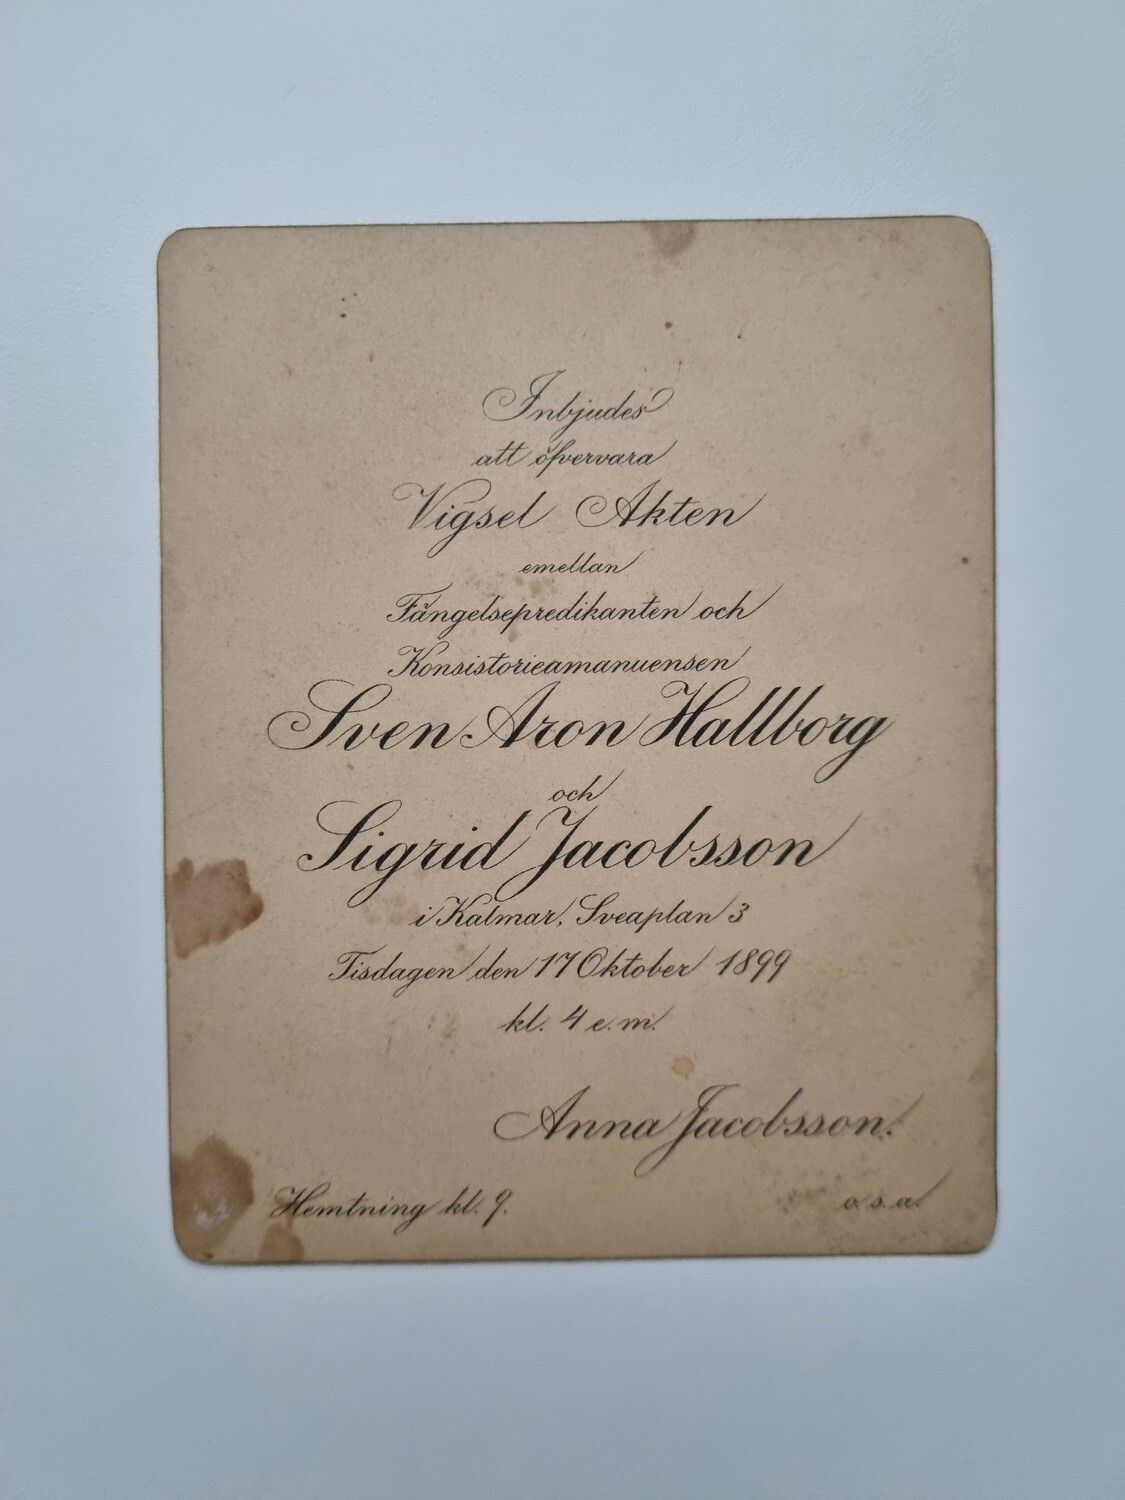 Inbjudes
att öfvervara
Vigsel Akten
emellan
Fängelsepredikanten och
Konsistorieamanuensen
Sven Aron Hallborg
och
Sigrid Jacobsson
i Kalmar, Sveaplan 3
Tisdagen den 17 Oktober 1899
kl. 4 e.m.
Anna Jacobsson.
Hemtning kl. 9.
o.s.a.